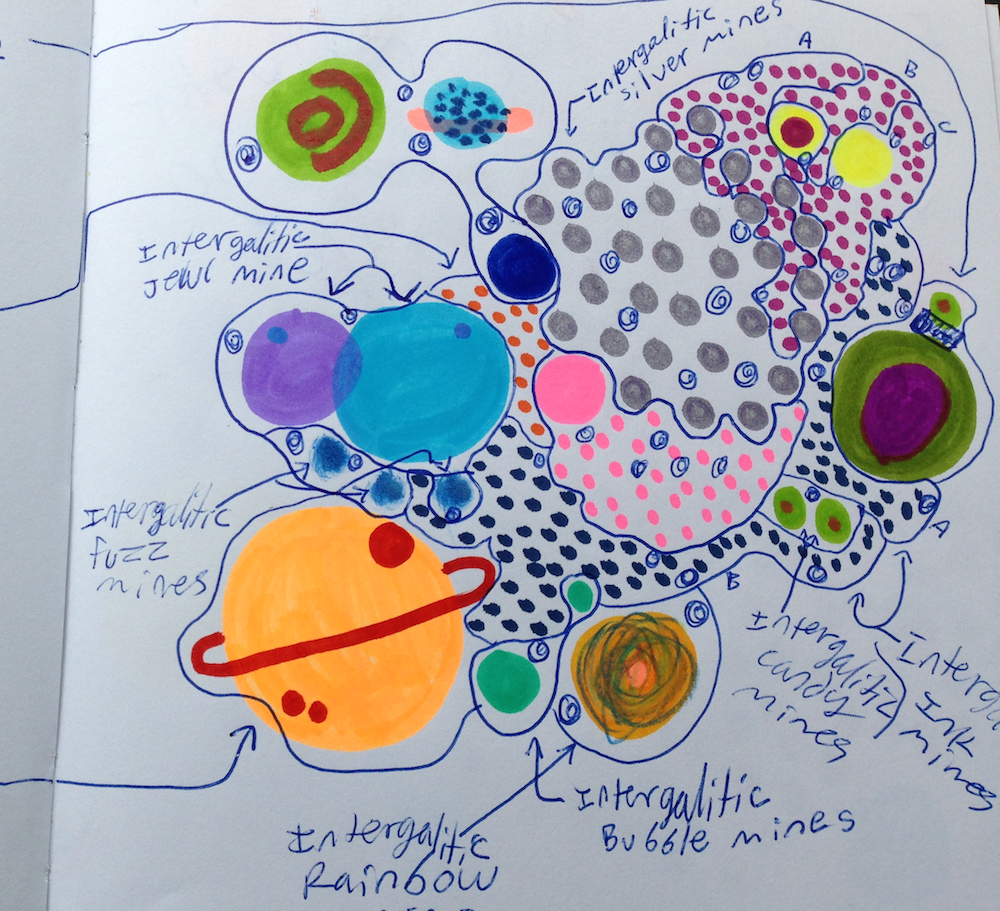 Intergalitic
silver mines
A
B
C
Intergalitic
Jewl mine
Intergalitic
fuzz
mines
A
B
Intergalitic
candy
mines
Ink
mines
Intergalitic
Bubble mines
Intergalitic
Rainbow